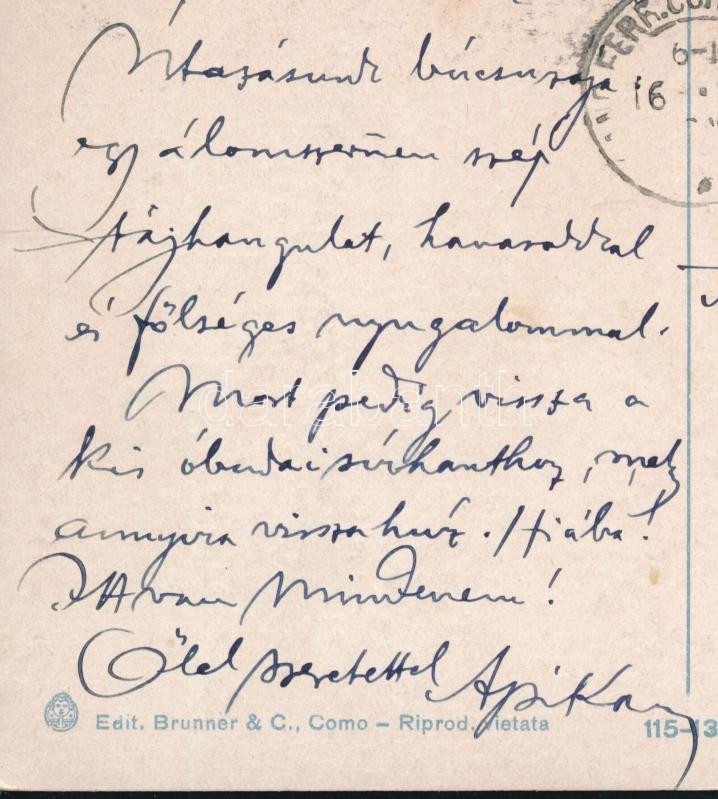 FERR. COM
6-1
16
Utazásunk búcsuzója
egy álomszerűen szép
tájhangulat, havasokkal
és fölséges nyugalommal.
Most pedig vissza a
kis óbudai sírhanthoz, mely
annyira visszahúz. Hiába!
Ott van mindenem!
Ölel szeretettel Apika
darabanth
Edit. Brunner & C., Como – Riprod. vietata
115-13